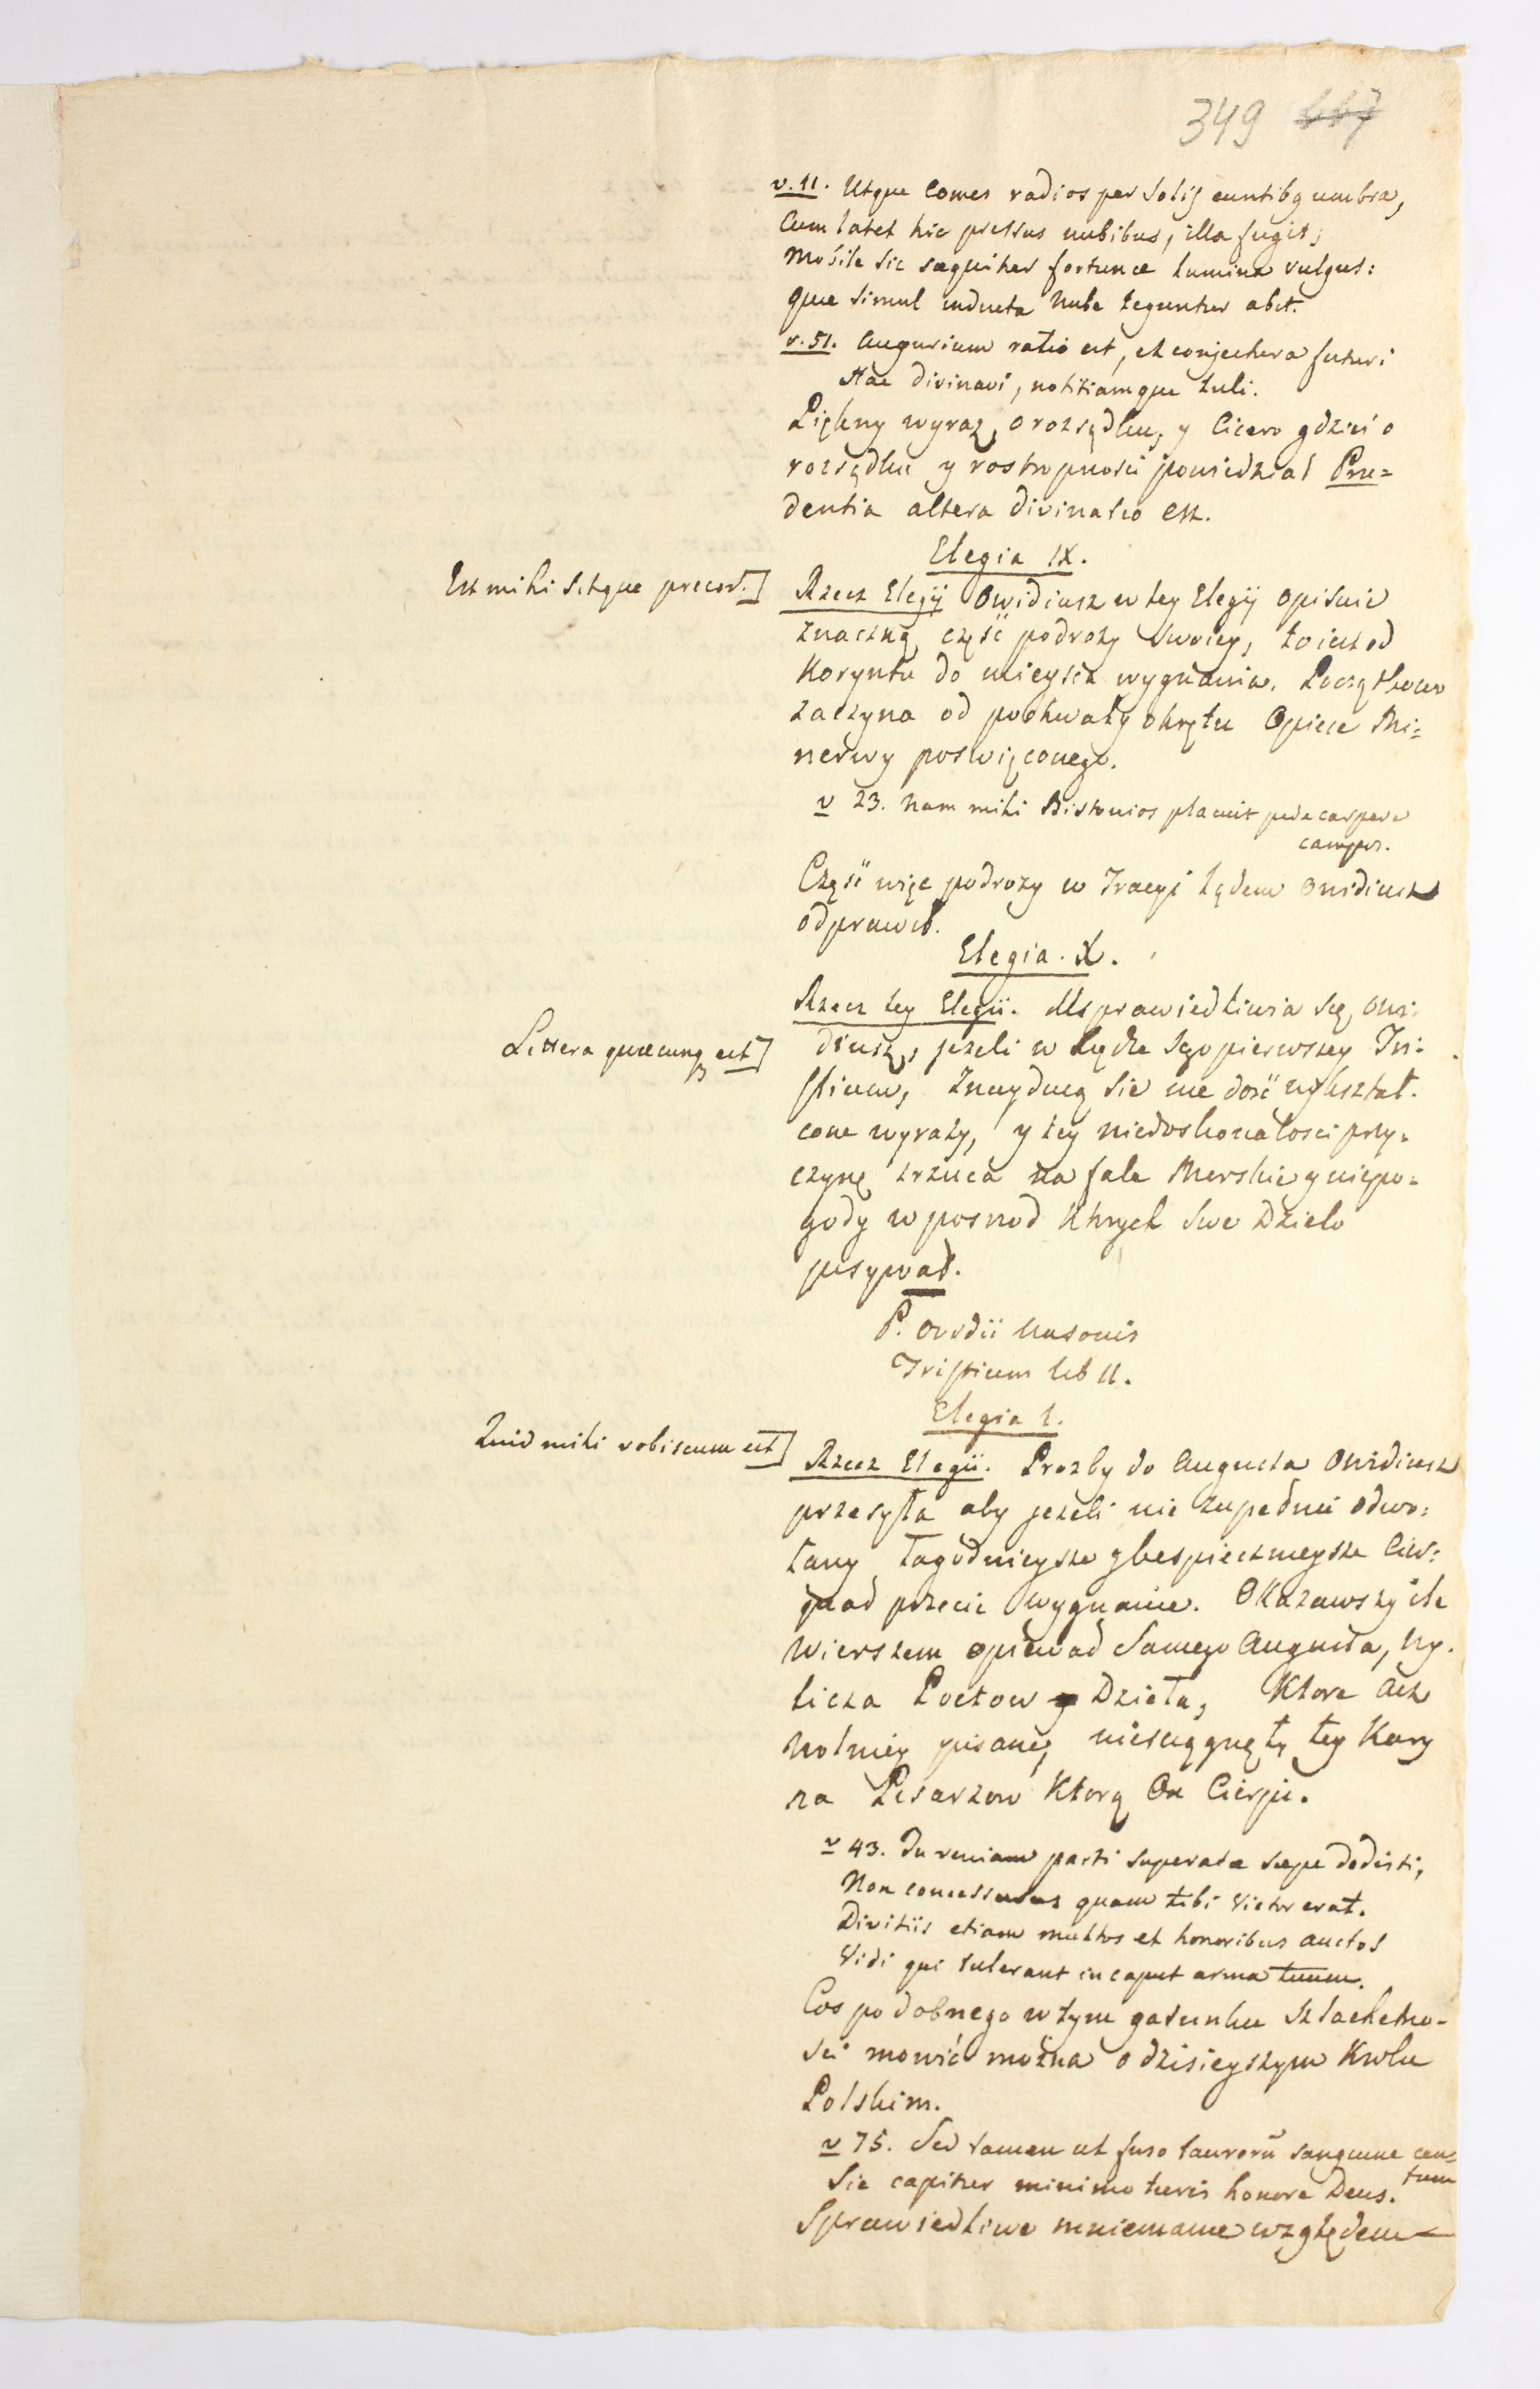 349 447
v. 11. Utque Comes radios per Solis euntibq umbra,
Cum latet hic pressus nubibus, illa fugit;
Mobile sic sequitur fortunæ lumina vulgus:
Quæ simul inducta Nube teguntur abit.
v. 51. Augurium ratio est, et conjectura futuri
Hac Divinavi, notitiamque tuli.
Piękny wyraz, o rozsądku, y Cicero gdzieś o
rozsądku y rostropności powiedział Pru=
dentia altera divinatio est.
Elegia IX.
Est mihi Sitque precor.]
Rzecz Elegij Owidiusz w tey Elegij opisuie
znaczną, część podroży swoiey, to iest od
Koryntu do mieysca wygnania. Początkowo
zaczyna od pochwały okrętu Opiece Mi=
nerwy poswięconego.
v 23. Nam mihi Bistonios placuit pede carpere
campos.
Część więc podroży w Tracyi lądem Owidiusz
odprawił.
Elegia. X.
Littera quæcunq est]
Rzecz tey Elegii. Usprawiedliwia się, Owi=
diusz, jeżeli w Xiędze Jego pierwszey Tri=
stium, Znayduią sie nie dość wykształ=
cone wyrazy, y tey niedoskonałosci przy=
czynę zrzuca na fale Morskie y niepo=
gody w posrod ktrych swe Dzieło
pisywał.
P. Ovidii Nasonis
Tristium lib II.
Elegia 1.
Quid mihi vobiscum est]
Rzecz Elegii. Prozby do Augusta Owidiusz
przesyła aby jeżeli nie zupełnie odwo=
łany łagodnieysze y bespiecznieysze Cier=
piał przecie wygnanie. Okazawszy ile
Wierszem opiewał Samego Augusta, Wy=
licza Poetow y Dzieła, Ktore acz
Wolniey pisane, niesciągnęły tey Kary
na Pisarzow Ktorą On Cierpi.
v 43. Tu veniam parti superatæ sæpe dedisti,
Non concessurus quam tibi Victor erat.
Divitiis etiam multos et honoribus auctos
Vidi qui tulerant in caput arma tuum.
Cos podobnego w tym gatunku Szlachetno=
sci mowić można o dzisieyszym Krolu
Polskim.
v 75. Sed tamen ut fuso taurorū sanguine cen=
tum
Sic capitur minimo turis honore Deus.
Sprawiedliwe mniemanie względem